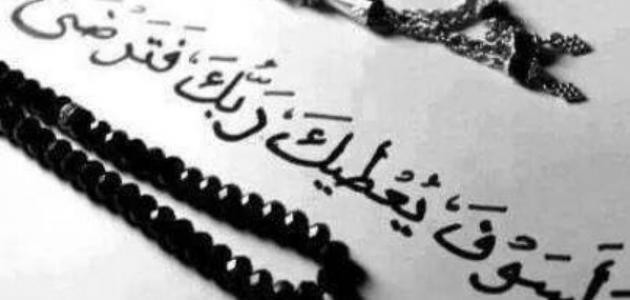 لَسَوْفَ يُعْطِيكَ رَبُّكَ فَتَرْضَى